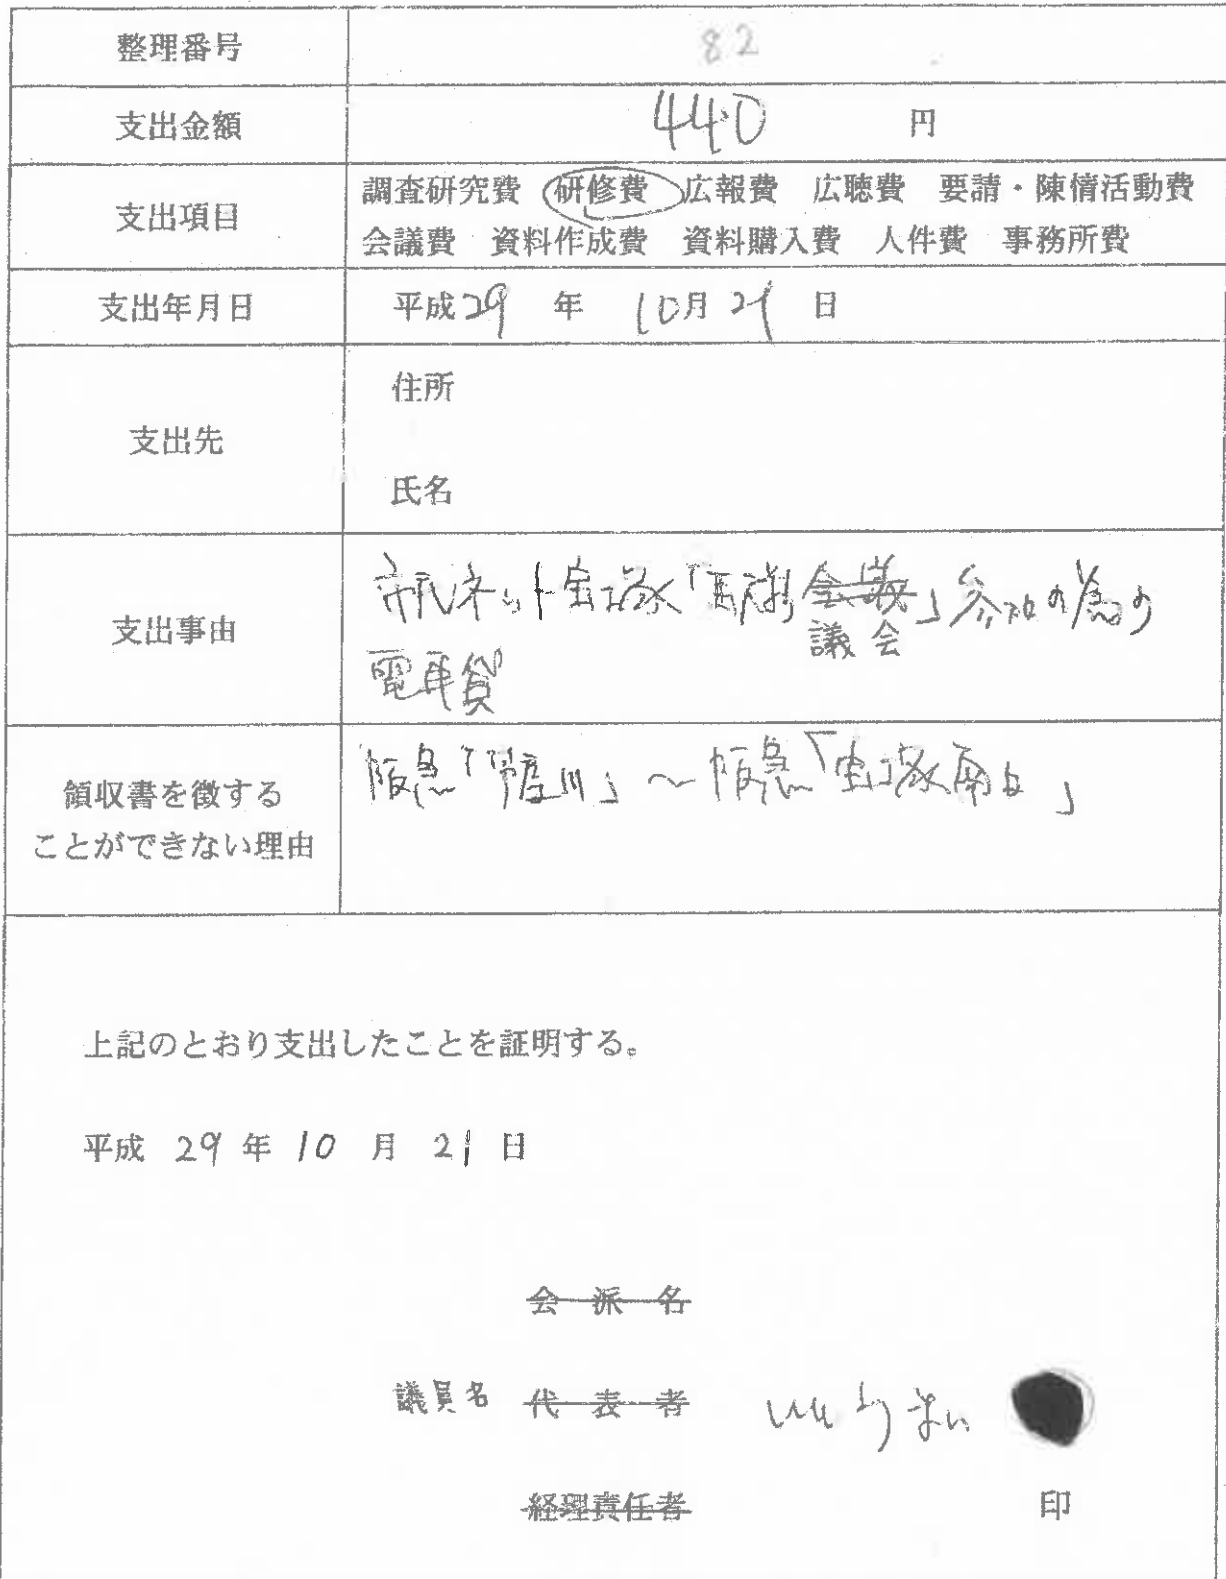 整理番号 82
支出金額 440 円
支出項目 調査研究費 研修費 広報費 広聴費 要請・陳情活動費
会議費 資料作成費 資料購入費 人件費 事務所費
支出年月日 平成29年 10月21日
支出先 住所
氏名
支出事由 市民ネット宝塚「 会議」参加の為の
議会
電車賃
領収書を徴する
ことができない理由
阪急「 」～阪急「宝塚南口」
上記のとおり支出したことを証明する。
平成 29 年 10 月 21 日
会派名
議員名 代表者
経理責任者 印